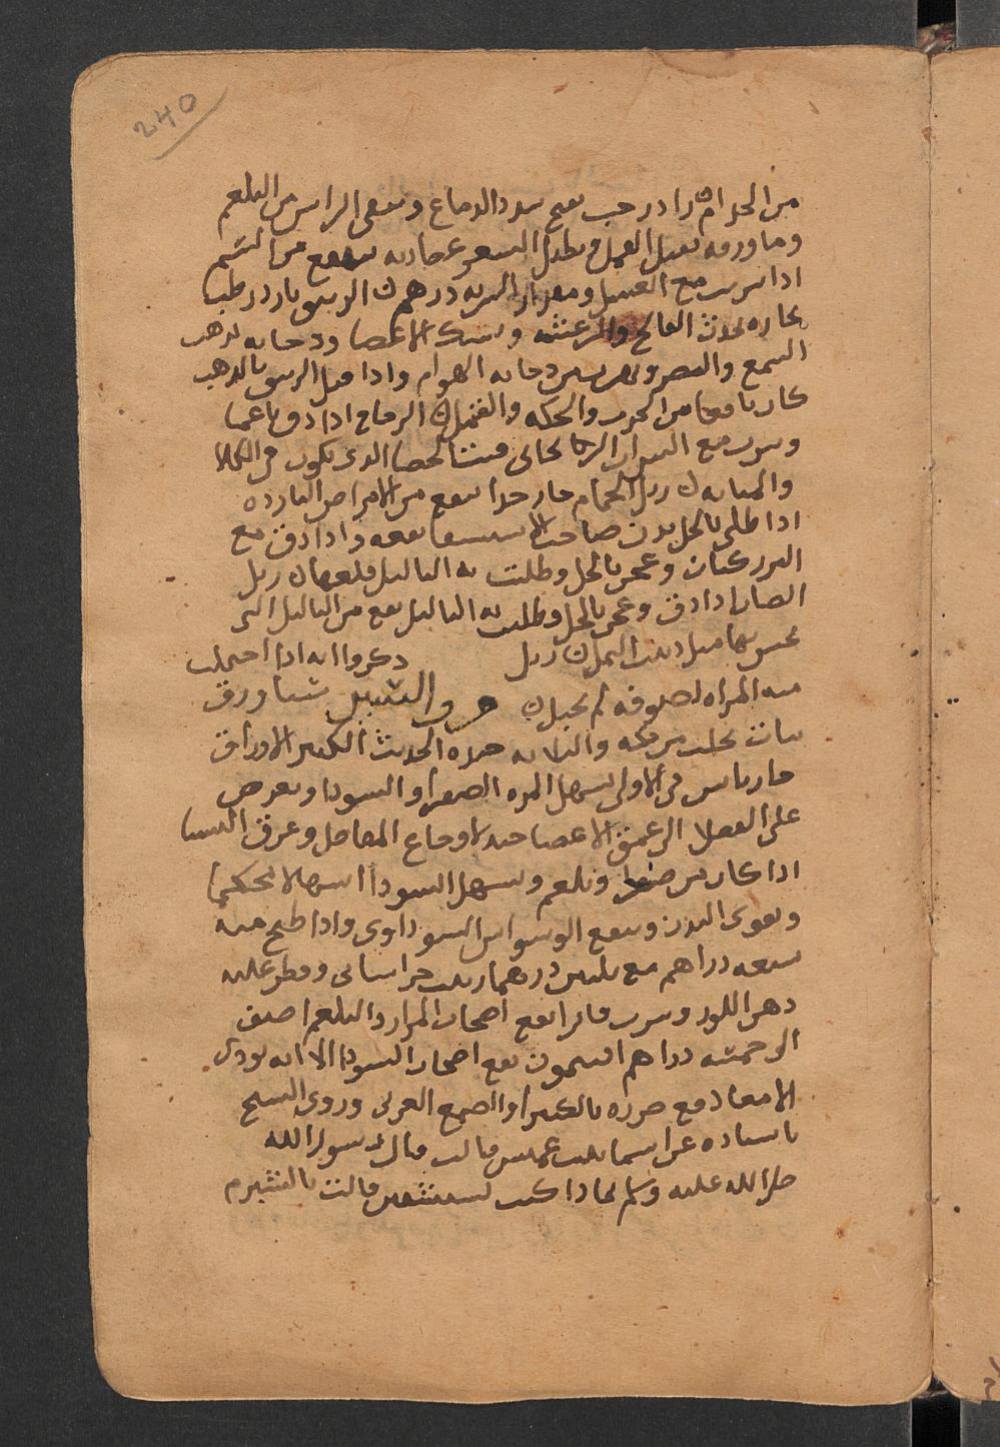 240
من الجذام زادرخت يفتح سدد الدماغ وينقي الراس من البلغم
وماورقه يقتل القمل ويطول الشعر عصارته ينفع من السم
اذا شرب مع العسل ومقدار الشربه درهم الزيبق بارد رطب
بخاره يحدث الفالج والرعشه ويشبك الاعصا ودخانه يذهب
السمع والبصر ويهرب من دخانه الهوام واذا قتل الزيبق بالذهب
كان نافعا من الجرب والحكه والقمل الزجاج اذا دق ناعما
وشرب مع الشراب الريحاني فتت الحصا الذي يكون في الكلا
والمثانه زبل الحمام حار جدا ينفع من الامراض البارده
اذا طلي بالخل بدن صاحب الاستسقا نفعه واذا دق مع
البزر كتان وعجن بالخل وطليت به الثاليل قلعها زبل
الضان اذا دق وعجن بالخل وطليت به الثاليل نفع من الثاليل التي
يحس بها مثل دبيب النمل زبل ذكروا انه اذا احتملت
منه المراه بصوفه لم تحبل حرف الشين شاورق
نبات يجلب من مكه والثلاثه جيده الحديث الكثير الاوراق
حار يابس في الاولى يسهل المره الصفرا والسودا ويغوص
على الفضلا الى عمق الاعصا جيد لاوجاع المفاصل وعرق النسا
اذا كان من صفرا وبلغم ويسهل السودا اسهالا محكما
ويقوي البدن وينفع الوسواس السوداوي واذا طبخ منه
سبعه دراهم مع ثلثين درهما زبيب خراساني وقطر عليه
دهن اللوز وشرب فاترا نفع اصحاب المرار والبلغم اضيف
الى خمسه دراهم افتيمون نفع اصحاب السودا الا انه يوذي
الامعا دفع ضرره بالكثيرا والصمغ العربي وروى الشيخ
باسناده عن اسما بنت عميس قالت قال رسول الله
صلى الله عليه وسلم بماذا كنت تستمشين قالت بالشبرم